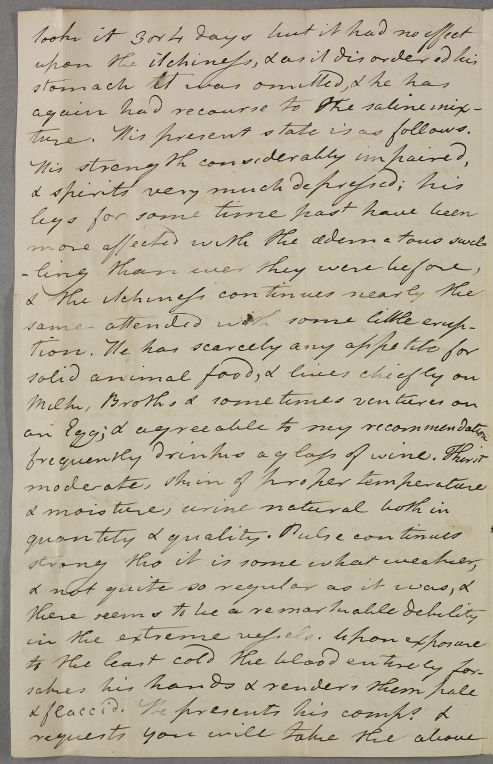 took it 3 or 4 days but it had no effect
upon the itchiness, & as it disordered his
stomach it was omitted, & he has
again had recourse to the saline mix-
ture. His present state is as follows.
His strength considerably impaired,
& spirits very much depressed; his
legs for some time past have been
more affected with the œdematous swel
-ling than ever they were before,
& the itchiness continues nearly the
same attended with some little erup-
tion. He has scarcely any appetite for
solid animal food, & lives chiefly on
Milk, Broths & sometimes ventures on
an Egg; & agreeable to my recommendation
frequently drinks a glass of wine. Thirst
moderate, skin of proper temperature
& moisture, urine natural both in
quantity & quality. Pulse continues
strong tho it is somewhat weaker,
& not quite so regular as it was, &
there seems to be a remarkable debility
in the extreme vessels. Upon exposure
to the least cold the blood entirely for-
sakes his hands & renders them pale
& flaccid. He presents his comps. &
requests you will take the above